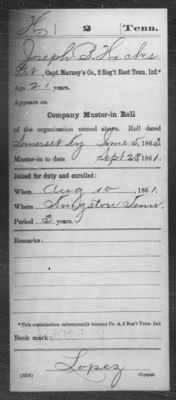 H | 2 | Tenn.
Joseph B. Hicks
Pvt, Capt. Marney's Co., 2 Reg't East Tenn. Inf.*
Age 21 years.
Appears on
Company Muster-in Roll
of the organization named above. Roll dated
Somerset Ky June 2, 1862
Muster-in to date Sept 28, 1861.
Joined for duty and enrolled:
When Aug 10, 1861.
Where Kingston Tenn.
Period 3 years.
Remarks:
*This organization subsequently became Co. A, 2 Reg't Tenn. Inf.
Book mark:
Lopez
(356) Copyist.